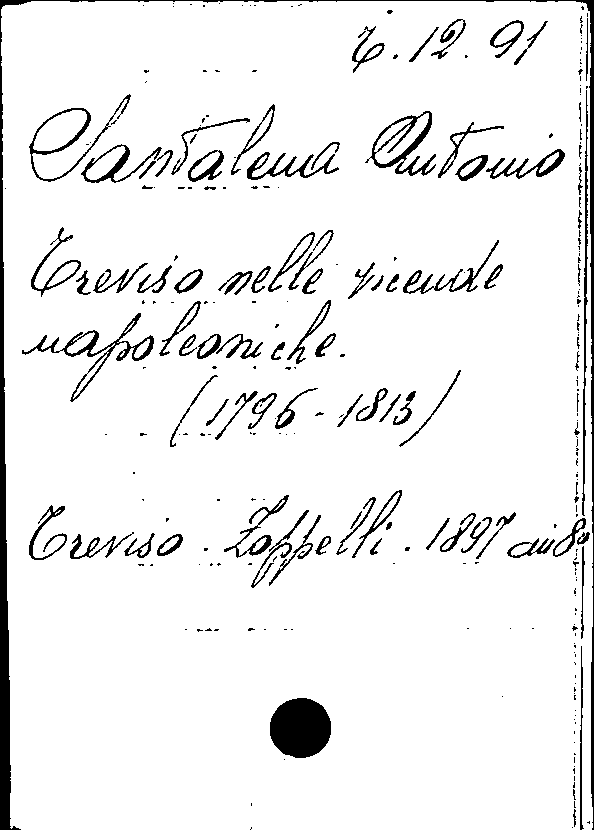 6.12.91
Santalena Antonio
Treviso nelle vicende
napoleoniche.
(1796-1813)
Treviso. Zoppelli. 1897 in 8º